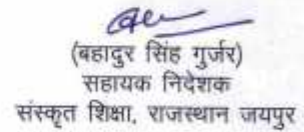 (बहादुर सिंह गुर्जर)
सहायक निदेशक
संस्कृत शिक्षा, राजस्थान जयपुर